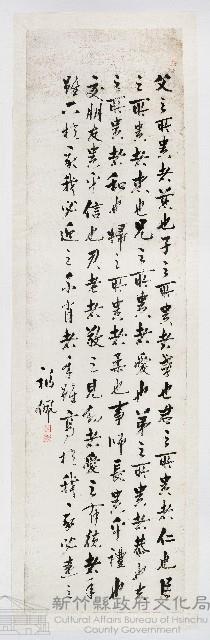 父之所貴者慈也子之所貴者孝也君之所貴者仁也臣
之所貴者忠也兄之所貴者愛也弟之所貴者恭也夫
之所貴者和也婦之所貴者柔也事師長貴乎禮也
交朋友貴乎信也見老者敬之見幼者愛之有德者年
雖下於我我必近之不肖者年雖高於我我必遠之
佩
新竹縣政府文化局
Cultural Affairs Bureau of Hsinchu
County Government